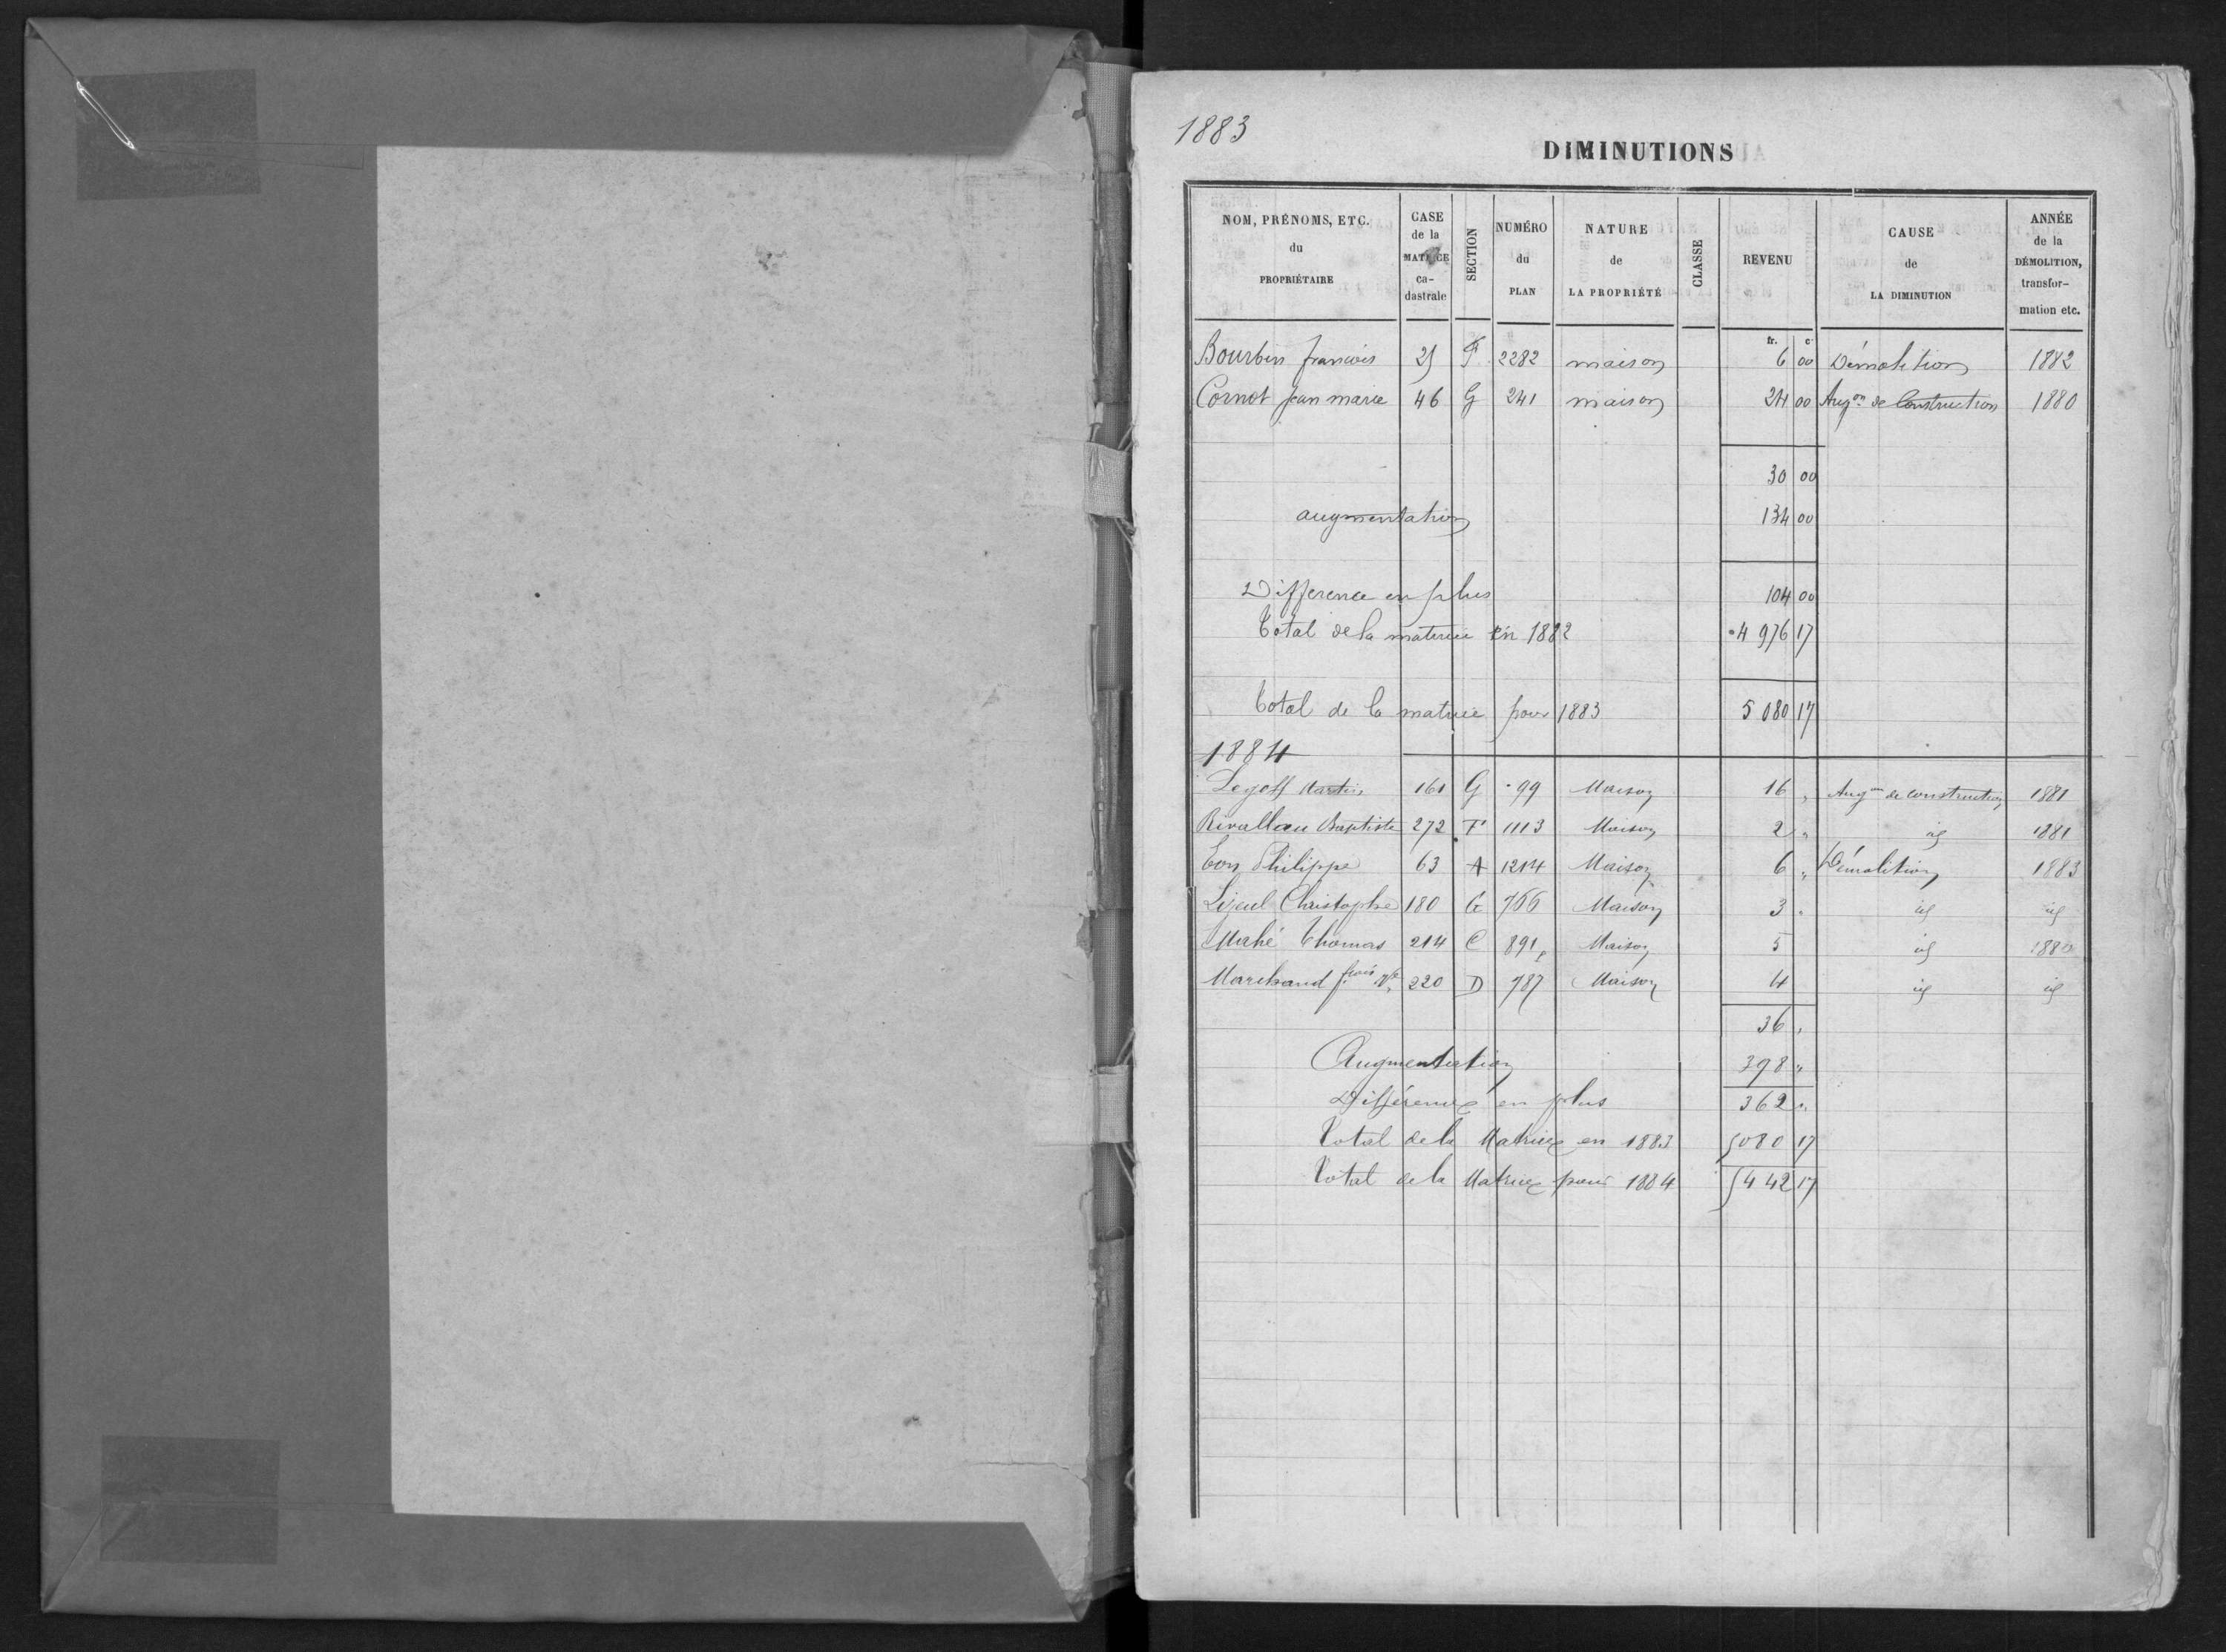 1883
DIMINUTIONS
NOM, PRÉNOMS, ETC. du PROPRIÉTAIRE | CASE de la MATRICE ca-dastrale | SECTION | NUMÉRO du PLAN | NATURE de LA PROPRIÉTÉ | CLASSE | REVENU | CAUSE de LA DIMINUTION | ANNÉE de la DÉMOLITION, transfor-mation etc.
fr. c
Bourbin francois 25 F 2282 maison 6 00 Démolition 1882
Cornot Jean marie 46 G 241 maison 24 00 Augon de Construction 1880
30 00
augmentation 134 00
Difference en plus 104 00
Total de la matrice en 1882 4 976 17
Total de la matrice pour 1883 5 080 17
1884
Legoff Martin 161 G 99 Maison 16 " Augon de construction 1881
Rivallau Baptiste 272 F 1113 Maison 2 " id 1881
Eon Philippe 63 A 1214 Maison 6 " Démolition 1883
Christophe 180 G 766 Maison 3 " id id
Mahé Thomas 214 C 891 Maison 5 id
Marchand 220 D 787 Maison 4 id id
36 "
Augmentation 398 "
Différence en plus 362 "
Total de la Matrice en 1883 5080 17
Total de la Matrice pour 1884 5442 17